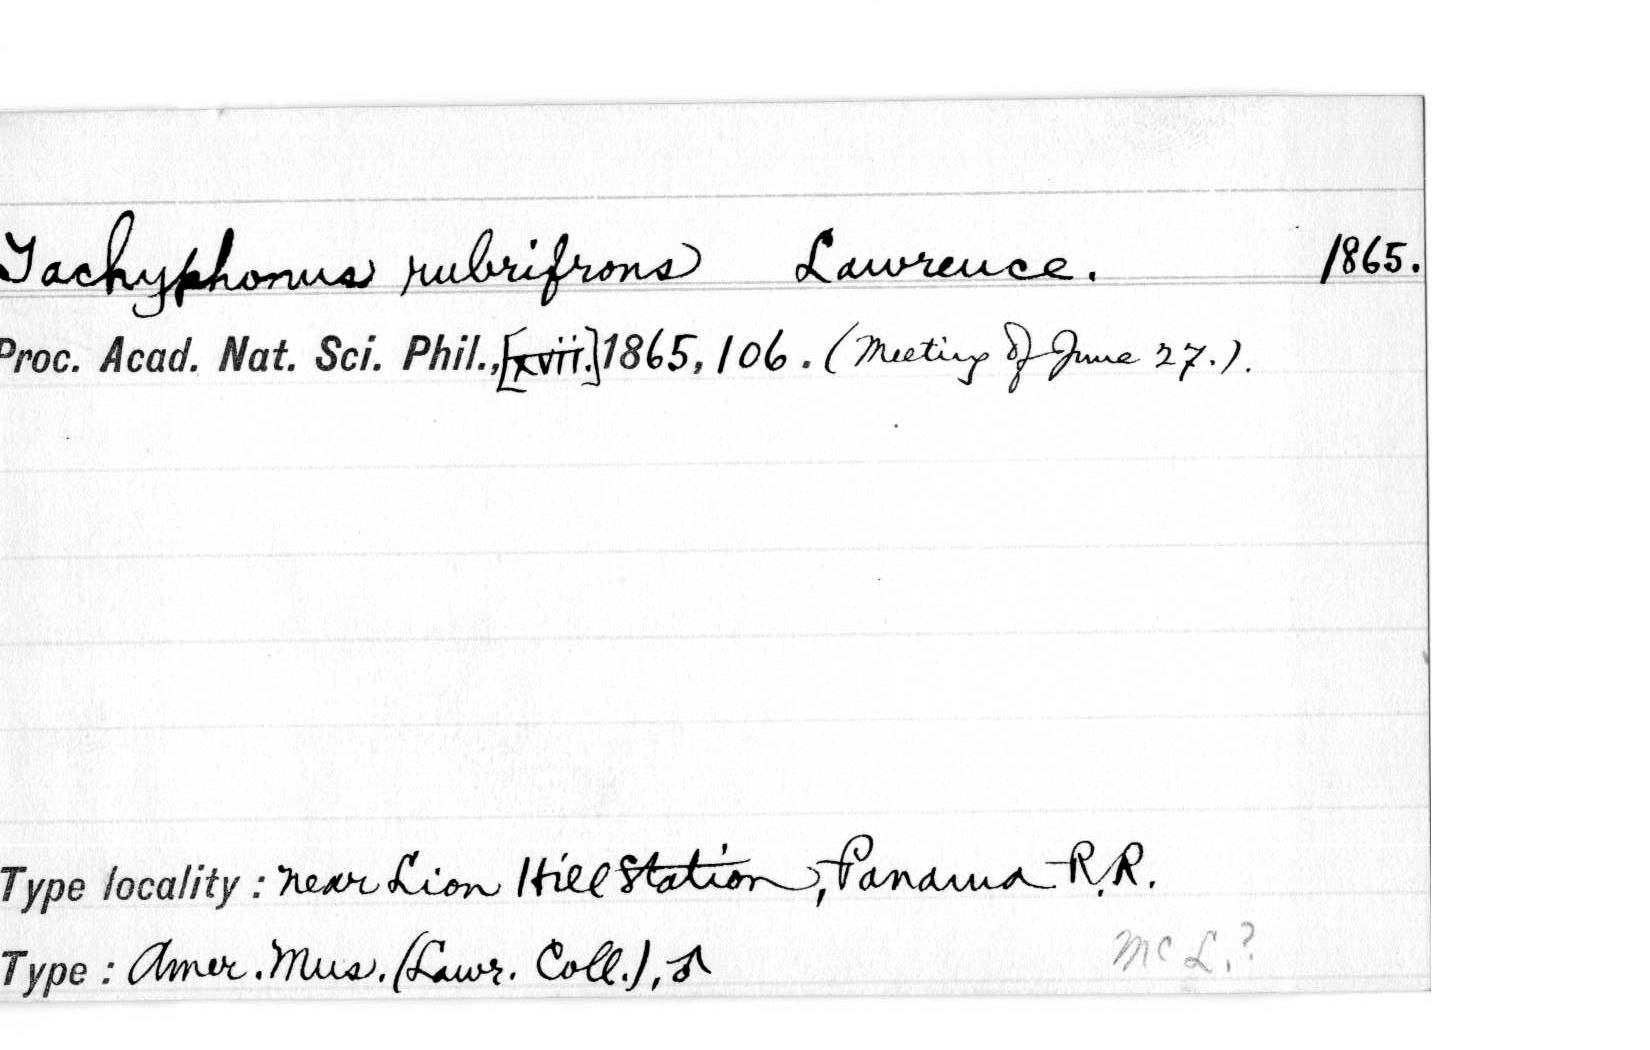 Tachyphonus rubrifrons Lawrence. 1865.
Proc. Acad. Nat. Sci. Phil., [xvii.] 1865, 106. (Meeting of June 27.).
Type locality: near Lion Hill Station, Panama R.R.
Type: Amer. Mus. (Lawr. Coll.), ♂
McL.?